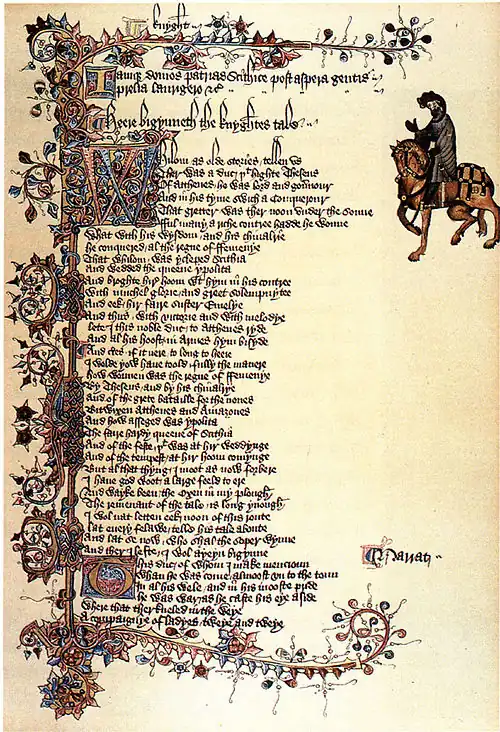 knyght
Iamque domos patrias Sithice post aspera gentis
prelia laurigero &c
Heere bigynneth the knyghtes tale
Whilom as olde stories tellen vs
Ther was a duc þt highte Theseus
Of Atthenes he was lord and gouernour
And in his tyme swich a Conquerour
That gretter was ther noon vnder the sonne
fful many a riche contree hadde he wonne
What with his wysdom and his chiualrie
he conquered al the regne of ffemenye
That whilom was ycleped Scithia
And wedded the queene ypolita
And broghte hire hoom wt hym in his contree
With muchel glorie and greet solempnytee
And eek hir faire suster Emelye
And thus with victorie and with melodye
lete I this noble duc to Atthenes ryde
And al his hoost in Armes hym bisyde
And certes if it nere to long to heere
I wolde yow haue toold fully the manere
how wonnen was the regne of ffemenye
By Theseus and by his chiualrye
And of the grete bataille for the nones
Bitwixen Atthenes and Amazones
And how asseged was ypolita
The faire hardy queene of Scithia
And of the feste þt was at hir weddynge
And of the tempest at hir hoom comynge
But al that thyng I moot as now forbere
I haue god woot a large feeld to ere
And wayke been the Oxen in my plough
The remenant of the tale is long ynough
I wol nat letten eek noon of this route
lat euery felawe telle his tale aboute
And lat se now who shal the soper wynne
And ther I lefte I wol ayeyn bigynne
Narrat
This duc of whom I make mencioun
Whan he was come almoost vn to the toun
In al his wele and in his mooste pride
he was war as he caste his eye aside
Where that ther kneled in the weye
A compaignye of ladyes tweye and tweye